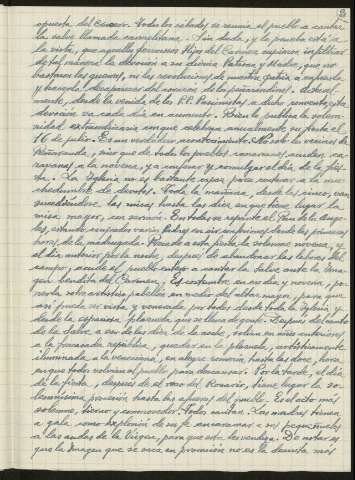 3
opuesta del coro. Todos los sábados se reunía el pueblo a cantar
la salve llamada carmelitana. Sin duda, y la prueba está a
la vista, que aquellos fervorosos Hijos del Carmen supieron infiltrar
de tal manera la devoción a su divina Patrona y Madre, que no
bastaron las guerras, ni las revoluciones de nuestra patria a
y hacerla desaparecer del corazón de los peñarandinos. Actual-
mente, desde la venida de los P.P. Pasionistas a dicho convento, esta
devoción va cada día en aumento. Bien lo publica la solem-
nidad extraordinaria con que celebran anualmente su fiesta el
16 de julio. Es un verdadero acontecimiento. No solo los vecinos de
Peñaranda, sino que de todos los pueblos comarcanos acuden en
a la novena, y a confesar y comulgar el día de la fies-
ta. La Iglesia no es bastante capaz para contener a la mu-
chedumbre de devotos. Toda la mañana, desde las cinco, van
sucediéndose las misas hasta las diez en que tiene lugar la
misa mayor, con sermón. En todas se reparte el Pan de los Ange-
les, estando ocupados varios Padres en oir confesiones desde las primeras
horas de la madrugada. Precede a esta fiesta la solemne novena, y
el día anterior por la noche, después de abandonar las labores del
campo, acude el pueblo entero a cantar la Salve ante la Ima-
gen bendita del Carmen. Es costumbre en ese día y novena, po-
nerla sobre artístico pabellón en medio del altar mayor, para que
así pueda ser vista y venerada por todos, desde toda la Iglesia y
desde la espaciosa plazuela que se llena de gente. Después del canto
de la Salve a eso de las diez de la noche, solían en años anteriores
a la funesta república, quedarse en la plazuela, artísticamente
iluminada a la veneciana, en alegre romería, hasta las doce, hora
en que todos volvían al pueblo para descansar. Por la tarde, el día
de la fiesta, después de el rezo del Rosario, tiene lugar la so-
lemnísima procesión hasta las afueras del pueblo. Es el acto más
solemne, tierno y conmovedor. Todos cantan. Las madres tienen
a gala como explosión de su fe encaramar a sus pequeñuelos
a las andas de la Virgen, para que esta les bendiga. De notar es
que la Imagen que se saca en procesión no es la descrita más